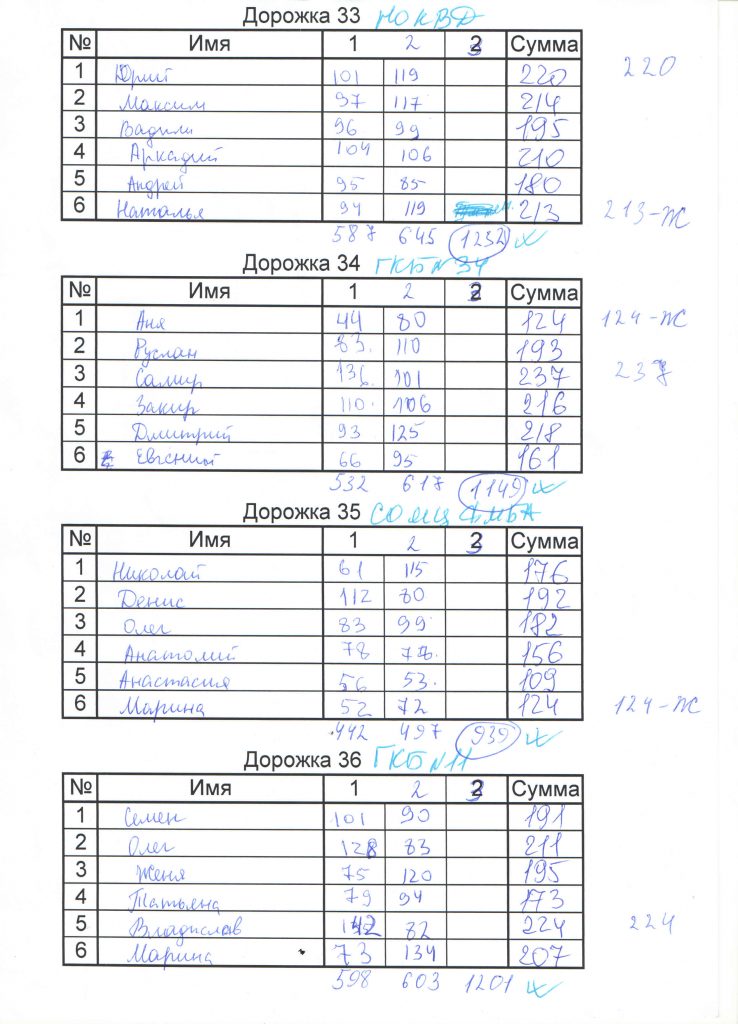 Дорожка 33 НОКВД
№ Имя 1 2 3 Сумма
1 Юрий 101 119 220 220
2 Максим 97 117 214
3 Вадим 96 99 195
4 Аркадий 104 106 210
5 Андрей 95 85 180
6 Наталья 94 119 213 213-Ж
587 645 1232
Дорожка 34 ГКБ№34
№ Имя 1 2 3 Сумма
1 Аня 44 80 124 124-Ж
2 Руслан 83. 110 193
3 Самир 136. 101 237 237
4 Закир 110. 106 216
5 Дмитрий 93 125 218
6 Евгений 66 95 161
532 617 1149
Дорожка 35 СОМЦ ФМБА
№ Имя 1 2 3 Сумма
1 Николай 61 115 176
2 Денис 112 80 192
3 Олег 83 99 182
4 Анатолий 78 78. 156
5 Анастасия 56 53. 109
6 Марина 52 72 124 124-Ж
442 497 939
Дорожка 36 ГКБ№11
№ Имя 1 2 3 Сумма
1 Семен 101 90 191
2 Олег 128 83 211
3 Женя 75 120 195
4 Татьяна 79 94 173
5 Владислав 142 82 224 224
6 Марина 73 134 207
598 603 1201